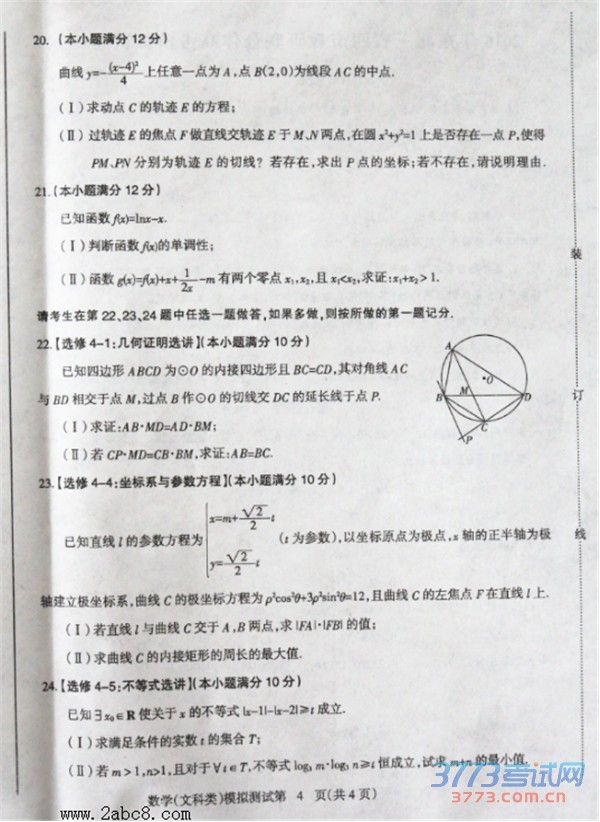 20.(本小题满分12分)
曲线 y=-(x-4)²/4 上任意一点为 A,点 B(2,0)为线段 AC 的中点.
(Ⅰ)求动点 C 的轨迹 E 的方程;
(Ⅱ)过轨迹 E 的焦点 F 做直线交轨迹 E 于 M、N 两点,在圆 x²+y²=1 上是否存在一点 P,使得
PM、PN 分别为轨迹 E 的切线?若存在,求出 P 点的坐标;若不存在,请说明理由.
21.(本小题满分12分)
已知函数 f(x)=lnx-x.
(Ⅰ)判断函数 f(x)的单调性;
(Ⅱ)函数 g(x)=f(x)+x+1/2x-m 有两个零点 x₁,x₂,且 x₁<x₂,求证:x₁+x₂>1.
请考生在第 22、23、24 题中任选一题做答,如果多做,则按所做的第一题记分.
22.【选修4-1:几何证明选讲】(本小题满分10分)
已知四边形 ABCD 为⊙O 的内接四边形且 BC=CD,其对角线 AC
与 BD 相交于点 M,过点 B 作⊙O 的切线交 DC 的延长线于点 P.
(Ⅰ)求证:AB·MD=AD·BM;
(Ⅱ)若 CP·MD=CB·BM,求证:AB=BC.
A
O
B
M
D
C
P
23.【选修4-4:坐标系与参数方程】(本小题满分10分)
已知直线 l 的参数方程为 { x=m+√2/2 t
y=√2/2 t (t 为参数),以坐标原点为极点,x 轴的正半轴为极
轴建立极坐标系,曲线 C 的极坐标方程为 ρ²cos²θ+3ρ²sin²θ=12,且曲线 C 的左焦点 F 在直线 l 上.
(Ⅰ)若直线 l 与曲线 C 交于 A,B 两点,求 |FA|·|FB| 的值;
(Ⅱ)求曲线 C 的内接矩形的周长的最大值.
24.【选修4-5:不等式选讲】(本小题满分10分)
已知∃x₀∈R 使关于 x 的不等式 |x-1|-|x-2|≥t 成立.
(Ⅰ)求满足条件的实数 t 的集合 T;
(Ⅱ)若 m>1,n>1,且对于∀t∈T,不等式 log₃m·log₃n≥t 恒成立,试求 m+n 的最小值.
数学(文科类)模拟测试第 4 页(共4页)
装
订
线
www.2abc8.com
3773考试网
www.3773.com.cn